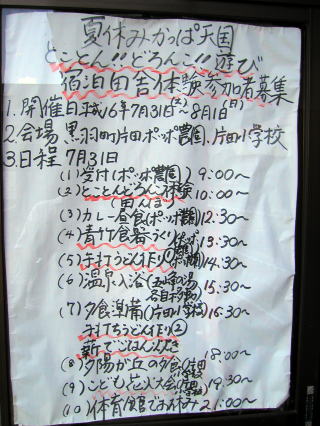 夏休みかっぱ天国
とことん!!どろんこ!!遊び
宿泊田舎体験参加者募集
1. 開催日 平成16年7月31日(土)~8月1日(日)
2. 会場 黒羽町片田ポッポ農園、片田小学校
3. 日程 7月31日
(1) 受付(ポッポ農園) 9:00~
(2) とことんどろんこ体験 10:00~
田んぼ
(3) カレー昼食(ポッポ農園) 12:30~
(4) 青竹食器づくり 13:30~
(5) 手打うどん作り① 14:30~
(6) 温泉入浴 (五峰の湯 15:30~
(7) 夕食準備(片田小学校) 16:30~
手打ちうどん作り②
薪でごはん炊き
(8) 夕陽が丘の夕食(片田 18:00~
(9) こども花火大会 19:30~
(10) 体育館でお休み 21:00~